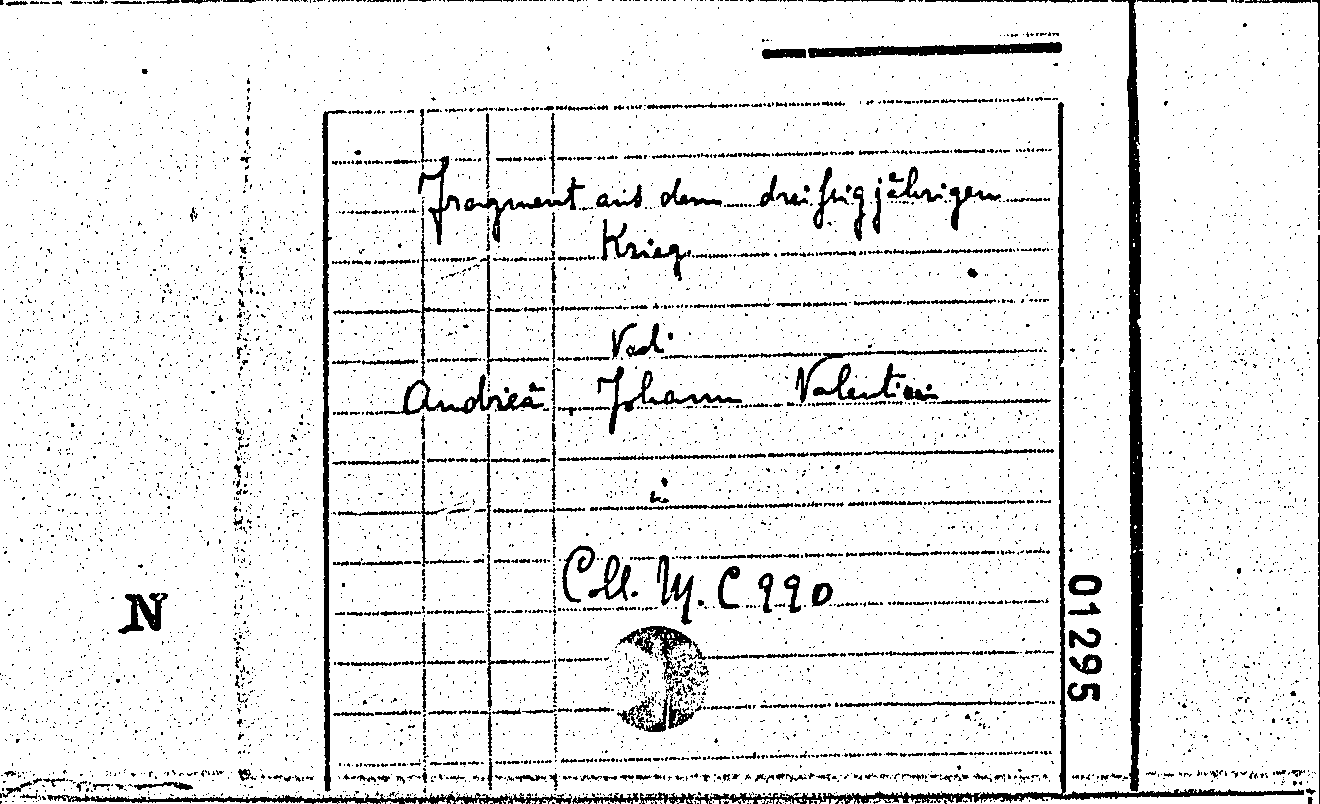 Fragment aus dem dreißigjährigen
Krieg
Vedi
Andreä, Johann Valentin
in
Coll. M. C 990
N
01295